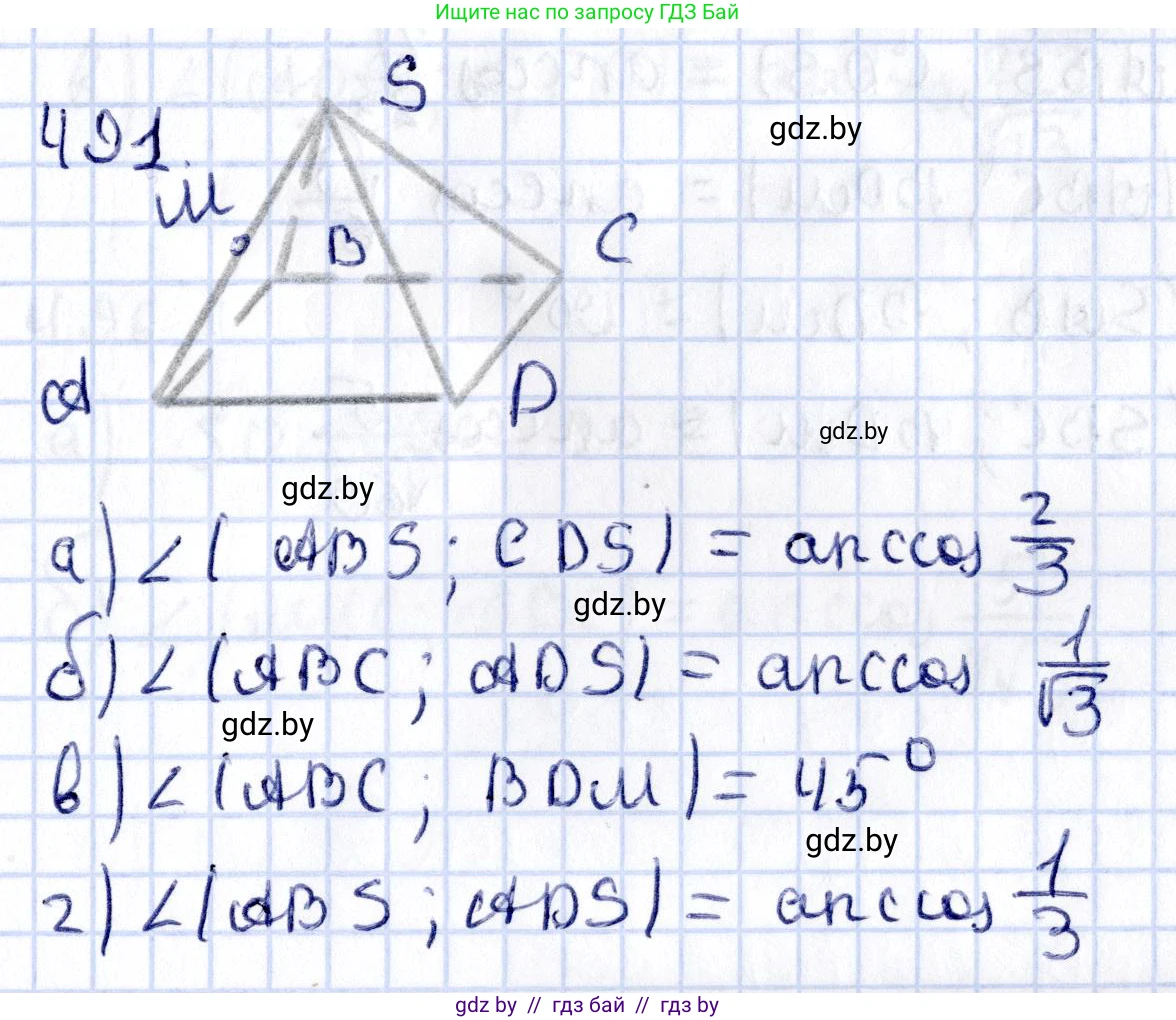 Ищите нас по запросу ГДЗ Бай
S
491.
gdz.by
M
B
C
A
D
gdz.by
gdz.by
а) ∠(ABS; CDS) = arccos 2/3
gdz.by
б) ∠(ABC; ADS) = arccos 1/√3
gdz.by
в) ∠(ABC; BDM) = 45°
gdz.by
г) ∠(ABS; ADS) = arccos 1/3
gdz.by // гдз бай // гдз by